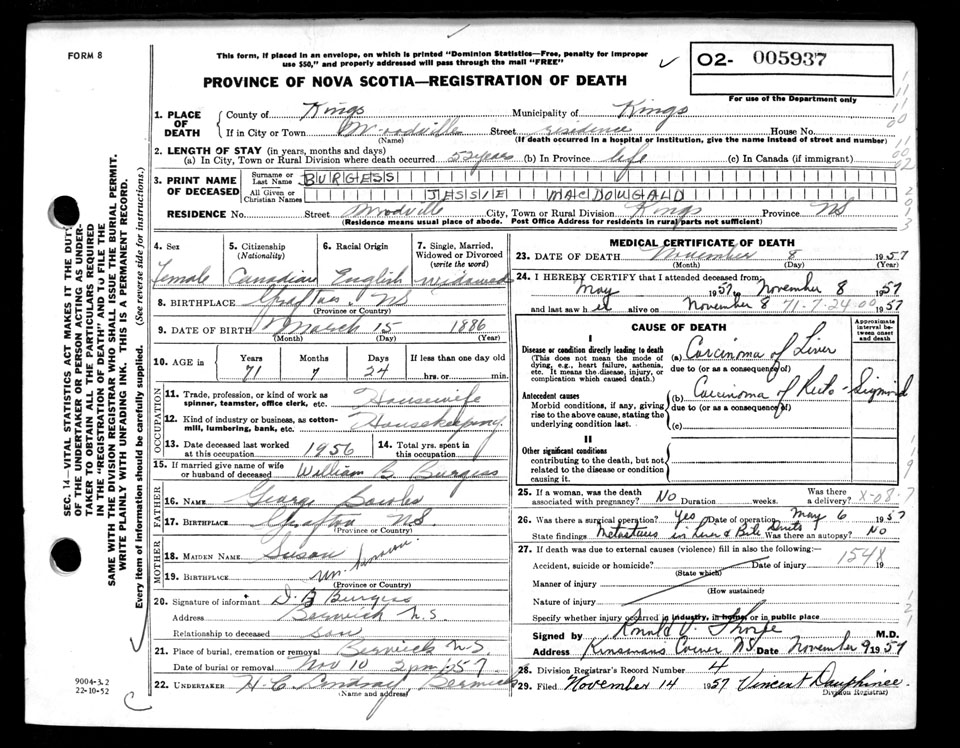 FORM 8
This form, if placed in an envelope, on which is printed "Dominion Statistics—Free, penalty for improper
use $50," and properly addressed will pass through the mail "FREE"
PROVINCE OF NOVA SCOTIA—REGISTRATION OF DEATH
O2- 005937
For use of the Department only
SEC. 14—VITAL STATISTICS ACT MAKES IT THE DUTY
OF THE UNDERTAKER OR PERSON ACTING AS UNDER-
TAKER TO OBTAIN ALL THE PARTICULARS REQUIRED
IN THE "REGISTRATION OF DEATH" AND TO FILE THE
SAME WITH THE DIVISION REGISTRAR WHO SHALL ISSUE THE BURIAL PERMIT.
WRITE PLAINLY WITH UNFADING INK. THIS IS A PERMANENT RECORD.
Every item of Information should be carefully supplied. (See reverse side for instructions.)
1. PLACE OF DEATH County of Kings Municipality of Kings
If in City or Town Woodville Street residence House No.
(Name) (If death occurred in a hospital or institution, give the name instead of street and number)
2. LENGTH OF STAY (in years, months and days)
(a) In City, Town or Rural Division where death occurred 52 years (b) In Province life (c) In Canada (if immigrant)
3. PRINT NAME OF DECEASED Surname or Last Name BURGESS
All Given or Christian Names JESSIE MACDOUGALD
RESIDENCE No. Street Woodville City, Town or Rural Division Kings Province NS
(Residence means usual place of abode. Post Office Address for residents in rural parts not sufficient)
4. Sex 5. Citizenship (Nationality) 6. Racial Origin 7. Single, Married, Widowed or Divorced (write the word)
Female Canadian English Widowed
8. BIRTHPLACE Grafton NS
(Province or Country)
9. DATE OF BIRTH March 15 1886
(Month) (Day) (Year)
10. AGE in Years Months Days If less than one day old
71 7 24 hrs. or min.
OCCUPATION
11. Trade, profession, or kind of work as spinner, teamster, office clerk, etc. Housewife
12. Kind of industry or business, as cotton-mill, lumbering, bank, etc. Housekeeping
13. Date deceased last worked at this occupation 1956 14. Total yrs. spent in this occupation
15. If married give name of wife or husband of deceased William B. Burgess
FATHER
16. NAME George Bowles
17. BIRTHPLACE Grafton NS
(Province or Country)
MOTHER
18. MAIDEN NAME Susan
19. BIRTHPLACE unknown
(Province or Country)
20. Signature of informant D. B Burgess
Address Berwick N.S.
Relationship to deceased son
21. Place of burial, cremation or removal Berwick N.S.
Date of burial or removal Nov 10 2pm 1957
22. UNDERTAKER H. C. Lindsay Berwick
(Name and address)
9004-3.2
22-10-52
MEDICAL CERTIFICATE OF DEATH
23. DATE OF DEATH November 8 1957
(Month) (Day) (Year)
24. I HEREBY CERTIFY that I attended deceased from:
May 1957 to November 8 1957
and last saw her alive on November 8 71-7-24-00 1957
CAUSE OF DEATH
Approximate interval between onset and death
I
Disease or condition directly leading to death
(This does not mean the mode of dying, e.g., heart failure, asthenia, etc. It means the disease, injury, or complication which caused death.)
(a) Carcinoma of Liver
due to (or as a consequence of)
Antecedent causes
Morbid conditions, if any, giving rise to the above cause, stating the underlying condition last.
(b) Carcinoma of Recto-Sigmoid
due to (or as a consequence of)
(c)
II
Other significant conditions
contributing to the death, but not related to the disease or condition causing it.
25. If a woman, was the death associated with pregnancy? No Duration weeks. Was there a delivery? X-08-7
26. Was there a surgical operation? Yes Date of operation May 6 1957
State findings Metastasis in Liver & Bile Ducts Was there an autopsy? No
27. If death was due to external causes (violence) fill in also the following:—
Accident, suicide or homicide? Date of injury 1548 19
(State which)
Manner of injury
(How sustained)
Nature of injury
Specify whether injury occurred in industry, in home or in public place
Signed by Ronald V. Thorpe M.D.
Address Kinsmans Corner NS. Date November 9 1957
28. Division Registrar's Record Number 4
29. Filed November 14 1957 Vincent Dauphinee
Division Registrar